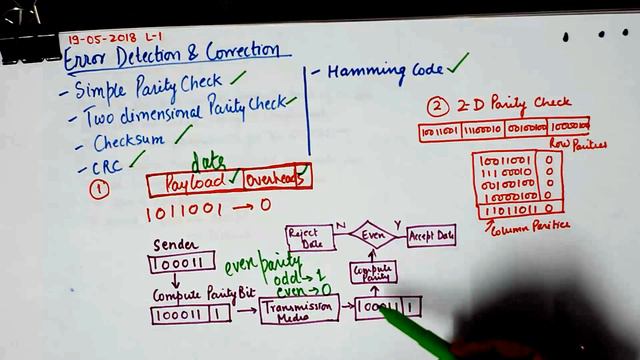 19-05-2018 L-1
Error Detection & Correction
- Simple Parity Check ✓
- Two dimensional Parity Check ✓
- Checksum ✓
- CRC ✓
- Hamming Code ✓
① data
Payload ✓ Overheads
1011001 → 0
Sender
100011
Compute Parity Bit
100011 1
even parity
odd → 1
even → 0
Transmission
Media
100011 1
Compute
Parity
Even
N
Y
Reject
Data
Accept Data
② 2-D Parity Check
10011001 11100010 00100100 10000100
Row Parities
10011001 0
11100010 0
00100100 0
10000100 0
11011011 0
Column Parities